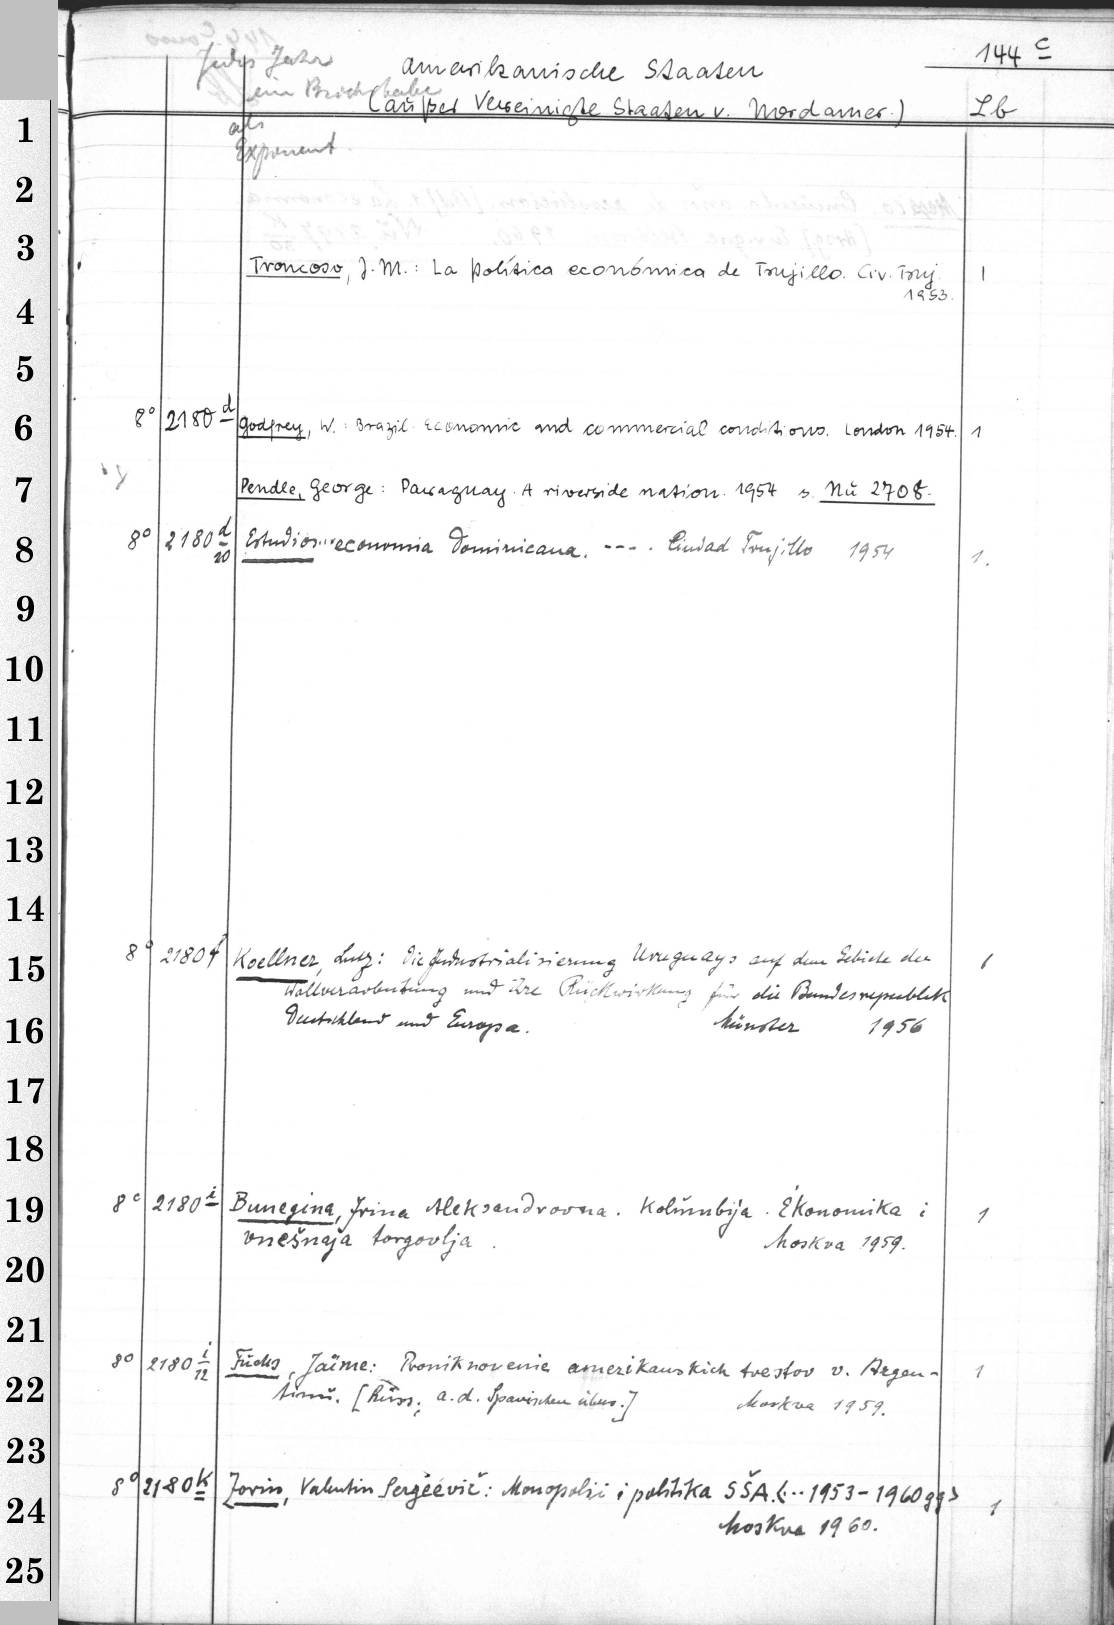 144 c
Jedes Jahr
amerikanische Staaten
ein Buchstabe
(außer Vereinigte Staaten v. Nordamer.)
Lb
als
Exponent.
1
2
3
Troncoso, J. M.: La política económica de Trujillo. Civ. Truj. 1
1953.
4
5
6
8° 2180 d Godfrey, W.: Brazil. Economic and commercial conditions. London 1954. 1
7
Pendle, George: Paraguay. A riverside nation. 1954 s. Nü 2708.
8
8° 2180 d/20 Estudios... economia Dominicana. ---. Ciudad Trujillo 1954 1.
9
10
11
12
13
14
15
8° 2180 f Koellner, Lutz: Die Industrialisierung Uruguays auf dem Gebiete der 1
Wollverarbeitung und ihre Rückwirkung für die Bundesrepublik
16
Deutschland und Europa. Münster 1956
17
18
19
8° 2180 i Bunegina, Irina Aleksandrovna. Kolumbija. Ėkonomika i 1
vnešnaja torgovlja. Moskva 1959.
20
21
22
8° 2180 i/12 Fuchs, Jaime: Proniknovenie amerikanskich trestov v. Argen- 1
tinu. [Russ., a. d. Spanischen übers.] Moskva 1959.
23
24
8° 2180 k Zorin, Valentin Sergeevič: Monopolii i politika SŠA. <... 1953-1960 gg> 1
Moskva 1960.
25